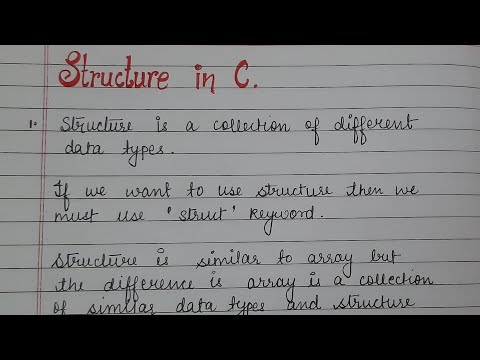 Structure in C.
1. Structure is a collection of different
data types.
If we want to use structure then we
must use 'struct' keyword.
Structure is similar to array but
the difference is array is a collection
of similar data types and structure